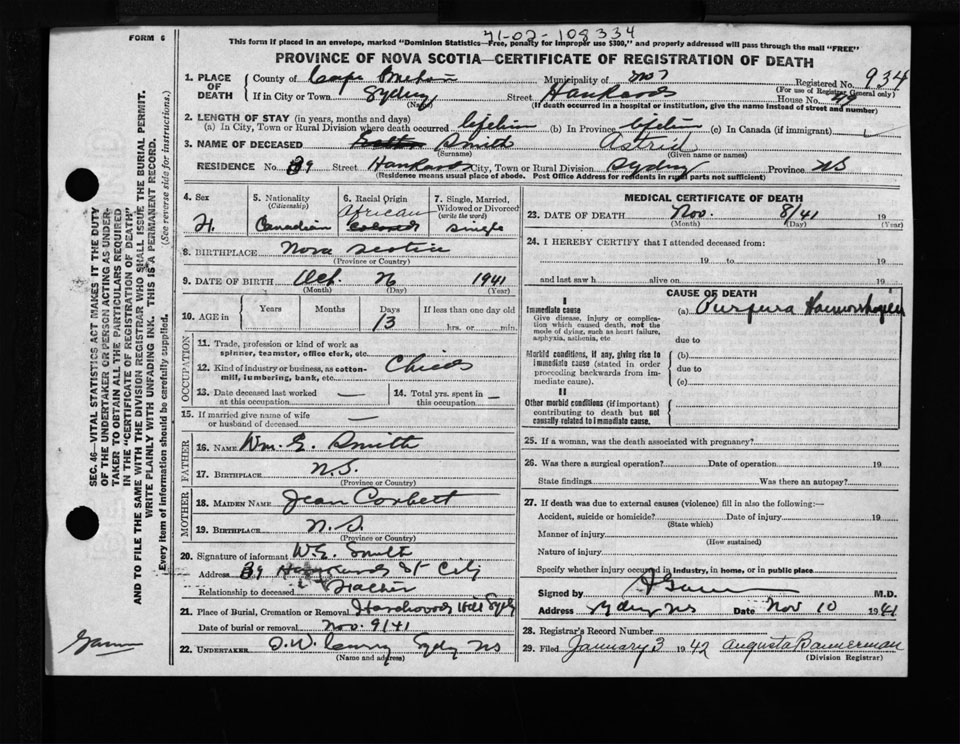 71-02-108334
FORM 6
This form if placed in an envelope, marked "Dominion Statistics—Free, penalty for improper use $300," and properly addressed will pass through the mail "FREE"
PROVINCE OF NOVA SCOTIA—CERTIFICATE OF REGISTRATION OF DEATH
1. PLACE OF DEATH
County of Cape Breton Municipality of Registered No. 934
(For use of Registrar General only)
If in City or Town Sydney Street House No.
(Name) (If death occurred in a hospital or institution, give the name instead of street and number)
2. LENGTH OF STAY (in years, months and days)
(a) In City, Town or Rural Division where death occurred lifetime (b) In Province lifetime (c) In Canada (if immigrant)
3. NAME OF DECEASED Smith Astrid
(Surname) (Given name or names)
RESIDENCE No. 39 Street City, Town or Rural Division Sydney Province NS
(Residence means usual place of abode. Post Office Address for residents in rural parts not sufficient)
4. Sex
5. Nationality (Citizenship) Canadian
6. Racial Origin African Colored
7. Single, Married, Widowed or Divorced (write the word) Single
8. BIRTHPLACE Nova Scotia
(Province or Country)
9. DATE OF BIRTH Oct. 26 1941
(Month) (Day) (Year)
10. AGE in Years Months Days 13 If less than one day old hrs. or min.
OCCUPATION
11. Trade, profession or kind of work as spinner, teamster, office clerk, etc.
12. Kind of industry or business, as cotton-mill, lumbering, bank, etc. Child
13. Date deceased last worked at this occupation —
14. Total yrs. spent in this occupation —
15. If married give name of wife or husband of deceased —
FATHER
16. NAME Wm. E. Smith
17. BIRTHPLACE N.S.
(Province or Country)
MOTHER
18. MAIDEN NAME Jean Corbett
19. BIRTHPLACE N.S.
(Province or Country)
20. Signature of informant W.E. Smith
Address 39 St City
Relationship to deceased Father
21. Place of Burial, Cremation or Removal Hardwood Hill Sydney
Date of burial or removal Nov. 9/41
22. UNDERTAKER Sydney NS
(Name and address)
MEDICAL CERTIFICATE OF DEATH
23. DATE OF DEATH Nov. 8/41 19
(Month) (Day) (Year)
24. I HEREBY CERTIFY that I attended deceased from:
19 to 19
and last saw h alive on 19
CAUSE OF DEATH
I
Immediate cause
Give disease, injury or complication which caused death, not the mode of dying, such as heart failure, asphyxia, asthenia, etc
(a) Purpura Haemorrhagica
due to
Morbid conditions, if any, giving rise to immediate cause (stated in order proceeding backwards from immediate cause).
(b)
due to
(c)
II
Other morbid conditions (if important) contributing to death but not causally related to immediate cause.
25. If a woman, was the death associated with pregnancy?
26. Was there a surgical operation? Date of operation 19
State findings Was there an autopsy?
27. If death was due to external causes (violence) fill in also the following:—
Accident, suicide or homicide? Date of injury 19
(State which)
Manner of injury
(How sustained)
Nature of injury
Specify whether injury occurred in industry, in home, or in public place
Signed by M.D.
Address Sydney NS Date Nov 10 1941
28. Registrar's Record Number
29. Filed January 3 1942 Augusta Bannerman
(Division Registrar)
SEC. 46—VITAL STATISTICS ACT MAKES IT THE DUTY
OF THE UNDERTAKER OR PERSON ACTING AS UNDER-
TAKER TO OBTAIN ALL THE PARTICULARS REQUIRED
IN THE "CERTIFICATE OF REGISTRATION OF DEATH"
AND TO FILE THE SAME WITH THE DIVISION REGISTRAR WHO SHALL ISSUE THE BURIAL PERMIT.
WRITE PLAINLY WITH UNFADING INK. THIS IS A PERMANENT RECORD.
Every item of information should be carefully supplied. (See reverse side for instructions.)